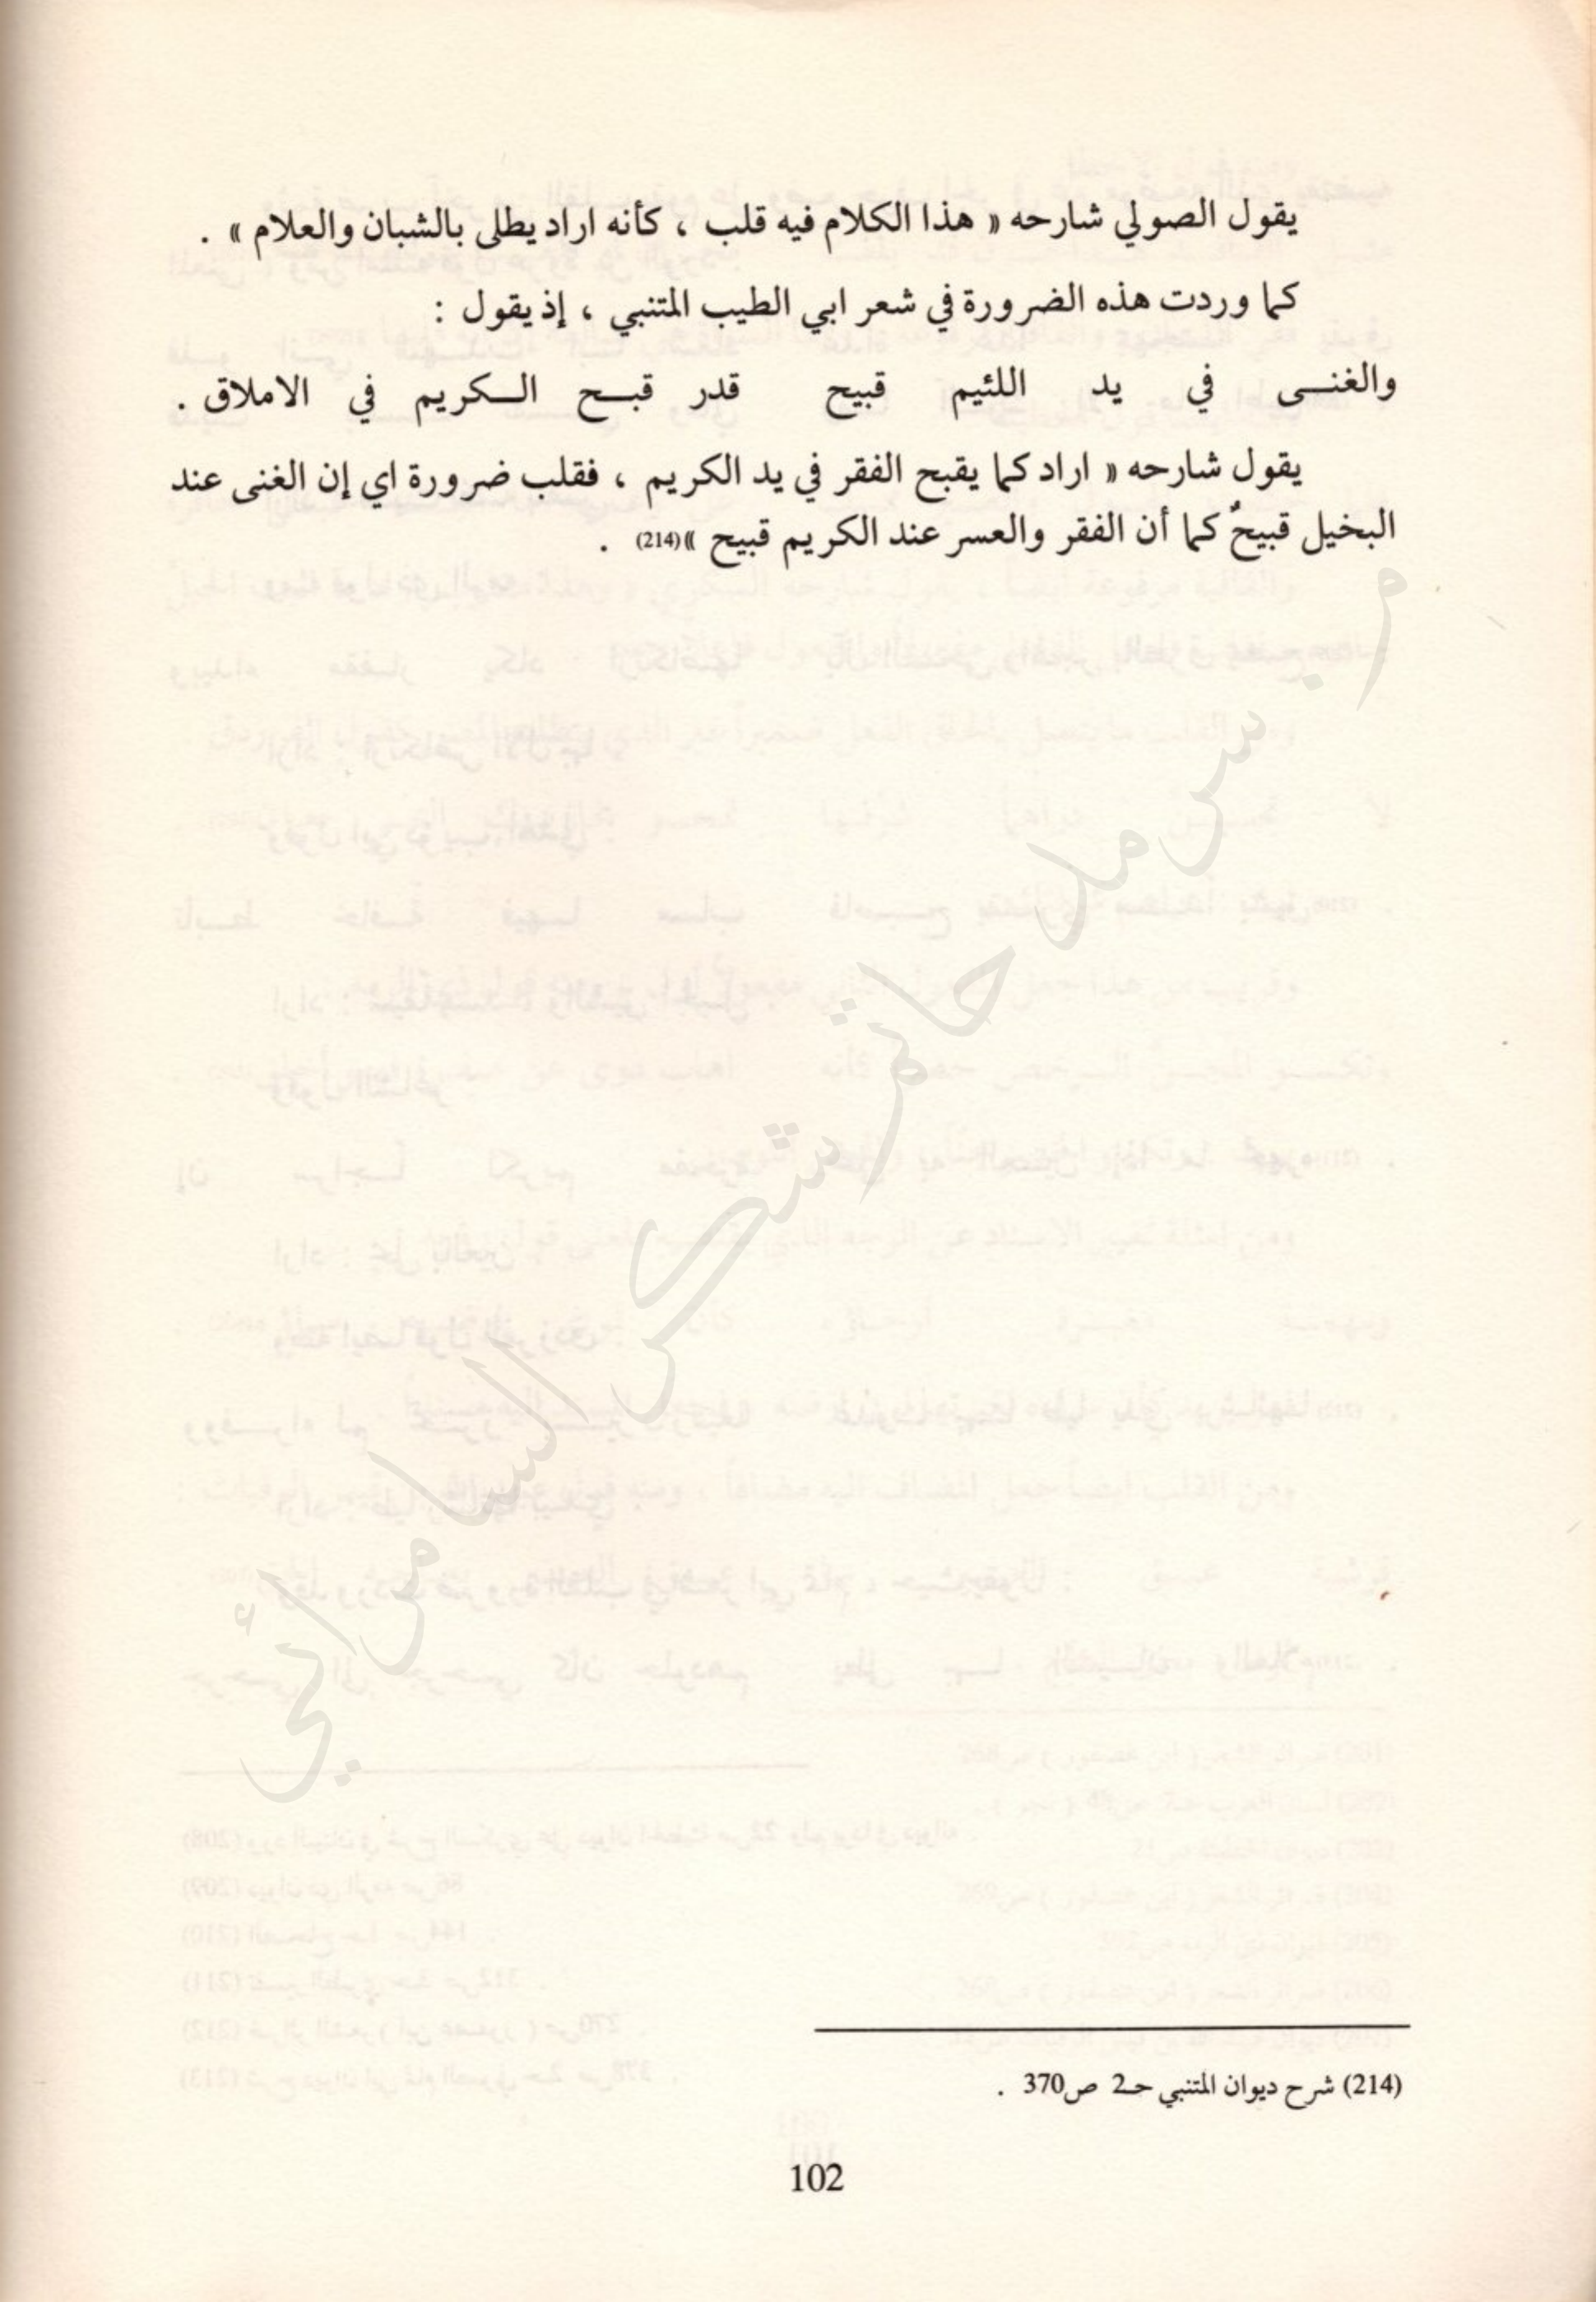 يقول الصولي شارحه « هذا الكلام فيه قلب ، كأنه اراد يطلى بالشبان والعلام » .
كما وردت هذه الضرورة في شعر ابي الطيب المتنبي ، إذ يقول :
والغنـــى في يد اللئيم قبيح قدر قبـــح الـــكريم في الاملاق .
يقول شارحه « اراد كما يقبح الفقر في يد الكريم ، فقلب ضرورة اي إن الغنى عند
البخيل قبيحٌ كما أن الفقر والعسر عند الكريم قبيح »(214) .
م. س مل حاتم شكر السامرائي
(214) شرح ديوان المتنبي حـ2 ص370 .
102